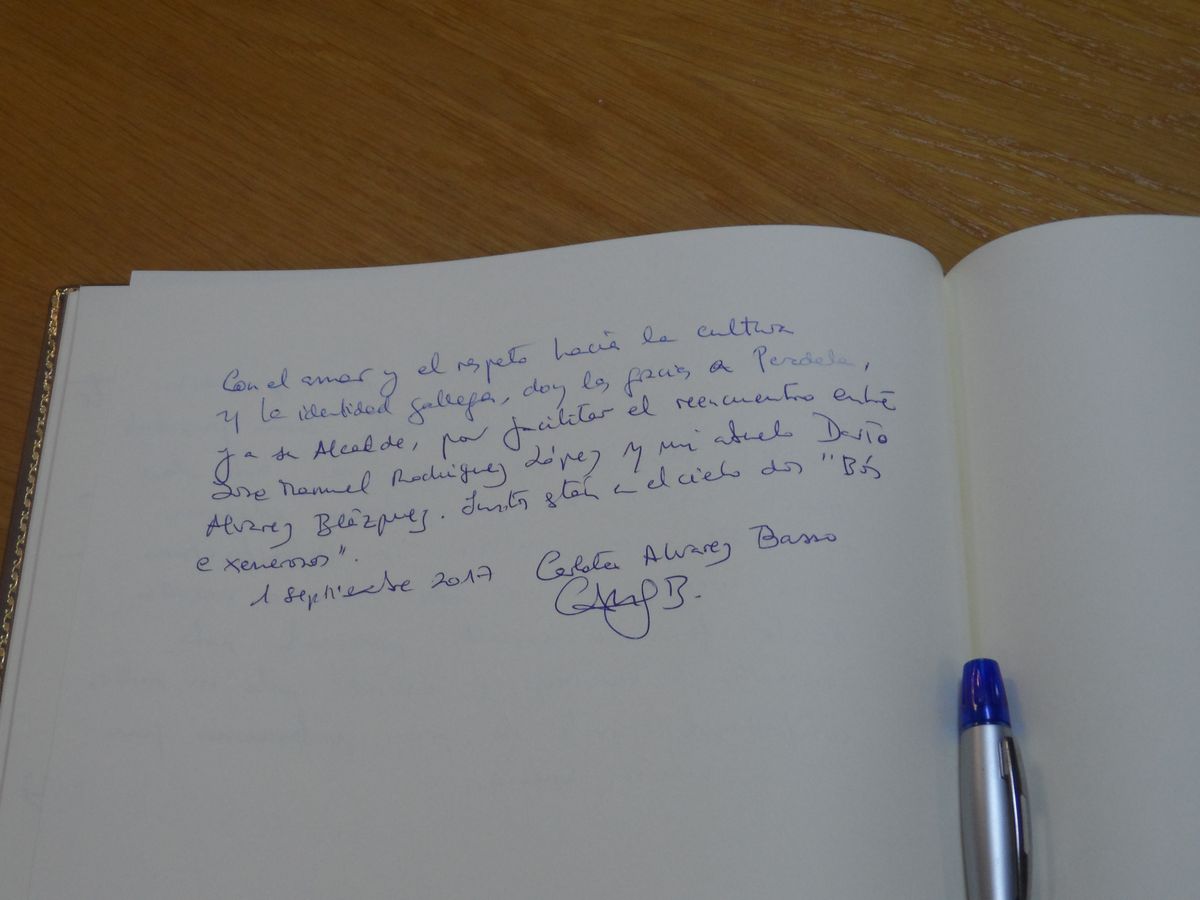 Con el amor y el respeto hacia la cultura
y la identidad gallega, doy las gracias a Paradela,
y a su Alcalde, por facilitar el reencuentro entre
Jose Manuel Rodriguez López y mi abuelo Darío
Alvarez Blázquez. Juntos están en el cielo dos "Bós
e xenerosos".
1 septiembre 2017 Carlota Alvarez Basso